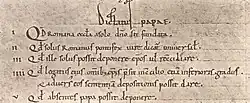 Dictatus papae.
i Qd Romana eccla a solo dno sit fundata.
ii Qd solus Romanus pontifex iure dicat universal.
iii Qd ille solus possit deponere epos ul reconciliare.
iiii Qd legatus eius omib; epis presit in concilio etiam inferioris gradus.
et adversus eos sententia depositionis possit dare.
v Qd absentes papa possit deponere.